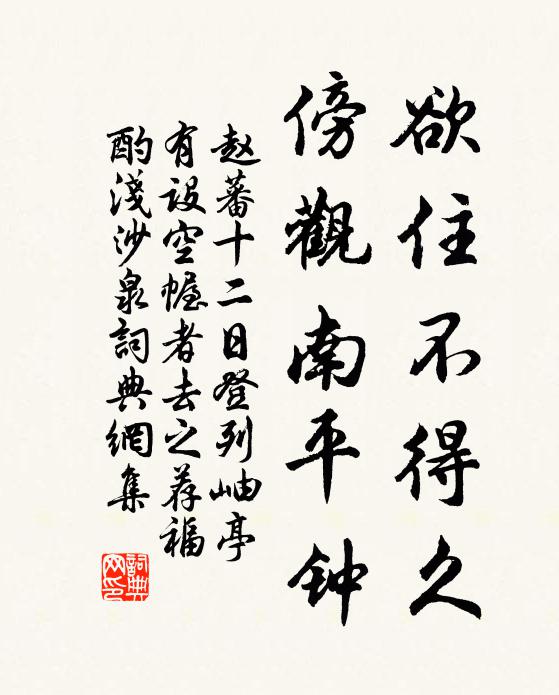 欲住不得久
傍觀南平钟
赵蕃十二日登列岫亭
有設空幄者去之荐福
酌淺沙泉詞典網集
詞典網印